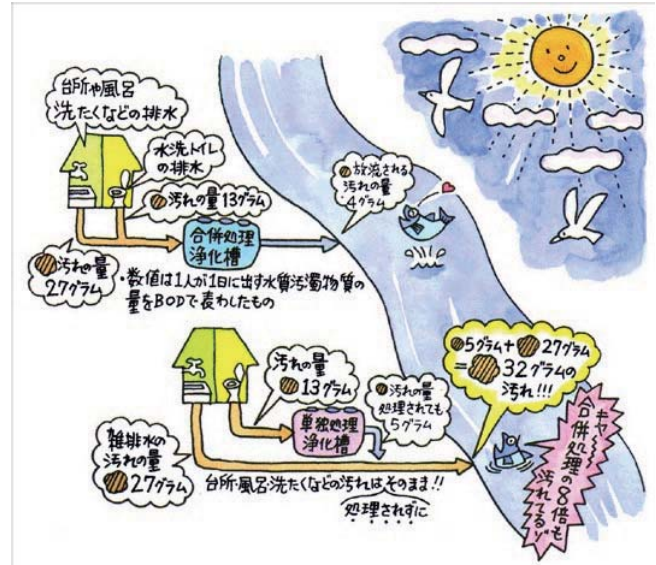 台所や風呂
洗たくなどの排水
水洗トイレ
の排水
汚れの量13グラム
放流される
汚れの量
4グラム
汚れの量
27グラム
合併処理
浄化槽
・数値は1人が1日に出す水質汚濁物質の
量をBODで表わしたもの
汚れの量
13グラム
汚れの量
処理されても
5グラム
単独処理
浄化槽
雑排水の
汚れの量
27グラム
台所・風呂・洗たくなどの汚れはそのまま!!
処理されずに
5グラム+27グラム
=32グラムの
汚れ!!!
キャ〜〜
合併処理の8倍も
汚れてるゾ